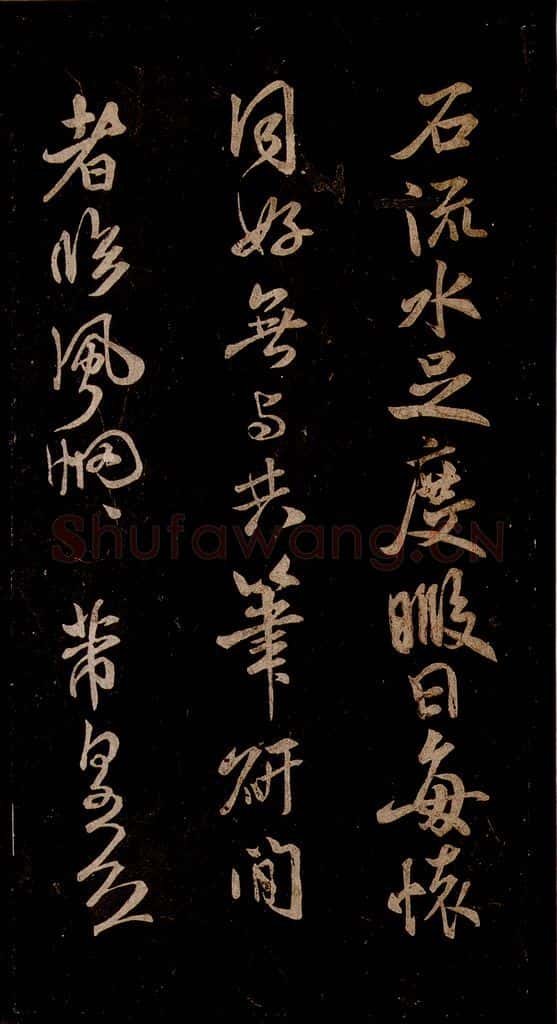 石流水足度暇日每懷
同好無与共筆研間
者临風惘、芾皇恐
Shufawang.CN